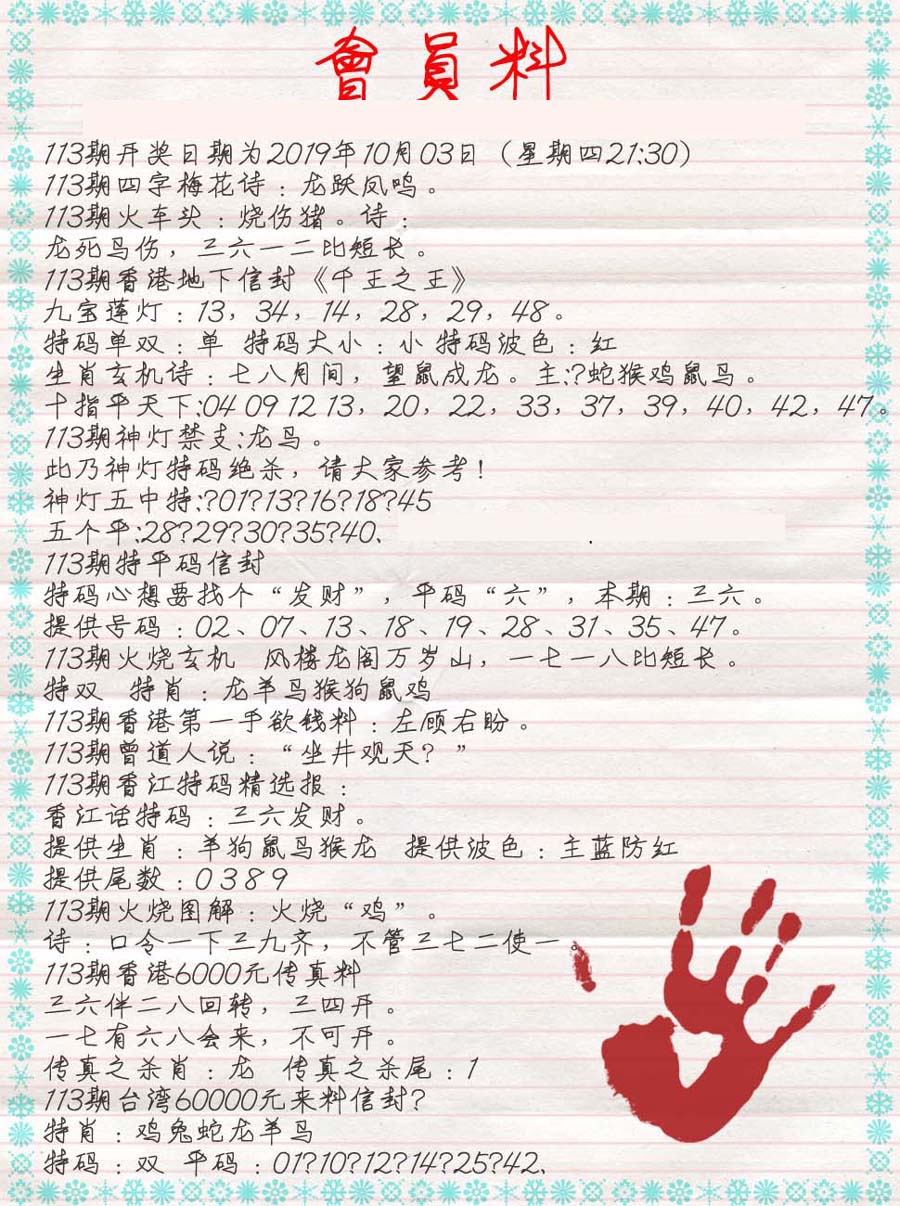 會員料
113期开奖日期为2019年10月03日（星期四21:30）
113期四字梅花诗：龙跃凤鸣。
113期火车头：烧伤猪。诗：
龙死马伤，三六一二比短长。
113期香港地下信封《千王之王》
九宝莲灯：13，34，14，28，29，48。
特码单双：单 特码大小：小 特码波色：红
生肖玄机诗：七八月间，望鼠成龙。主:?蛇猴鸡鼠马。
十指平天下:04 09 12 13，20，22，33，37，39，40，42，47。
113期神灯禁支:龙马。
此乃神灯特码绝杀，请大家参考！
神灯五中特:?01?13?16?18?45
五个平:28?29?30?35?40、
113期特平码信封
特码心想要找个“发财”，平码“六”，本期：三六。
提供号码：02、07、13、18、19、28、31、35、47。
113期火烧玄机 风楼龙阁万岁山，一七一八比短长。
特双 特肖：龙羊马猴狗鼠鸡
113期香港第一手欲钱料：左顾右盼。
113期曾道人说：“坐井观天？”
113期香江特码精选报：
香江话特码：三六发财。
提供生肖：羊狗鼠马猴龙 提供波色：主蓝防红
提供尾数：0 3 8 9
113期火烧图解：火烧“鸡”。
诗：口令一下三九齐，不管三七二使一。
113期香港6000元传真料
三六伴二八回转，三四开。
一七有六八会来，不可开。
传真之杀肖：龙 传真之杀尾：1
113期台湾60000元来料信封?
特肖：鸡兔蛇龙羊马
特码：双 平码：01?10?12?14?25?42、